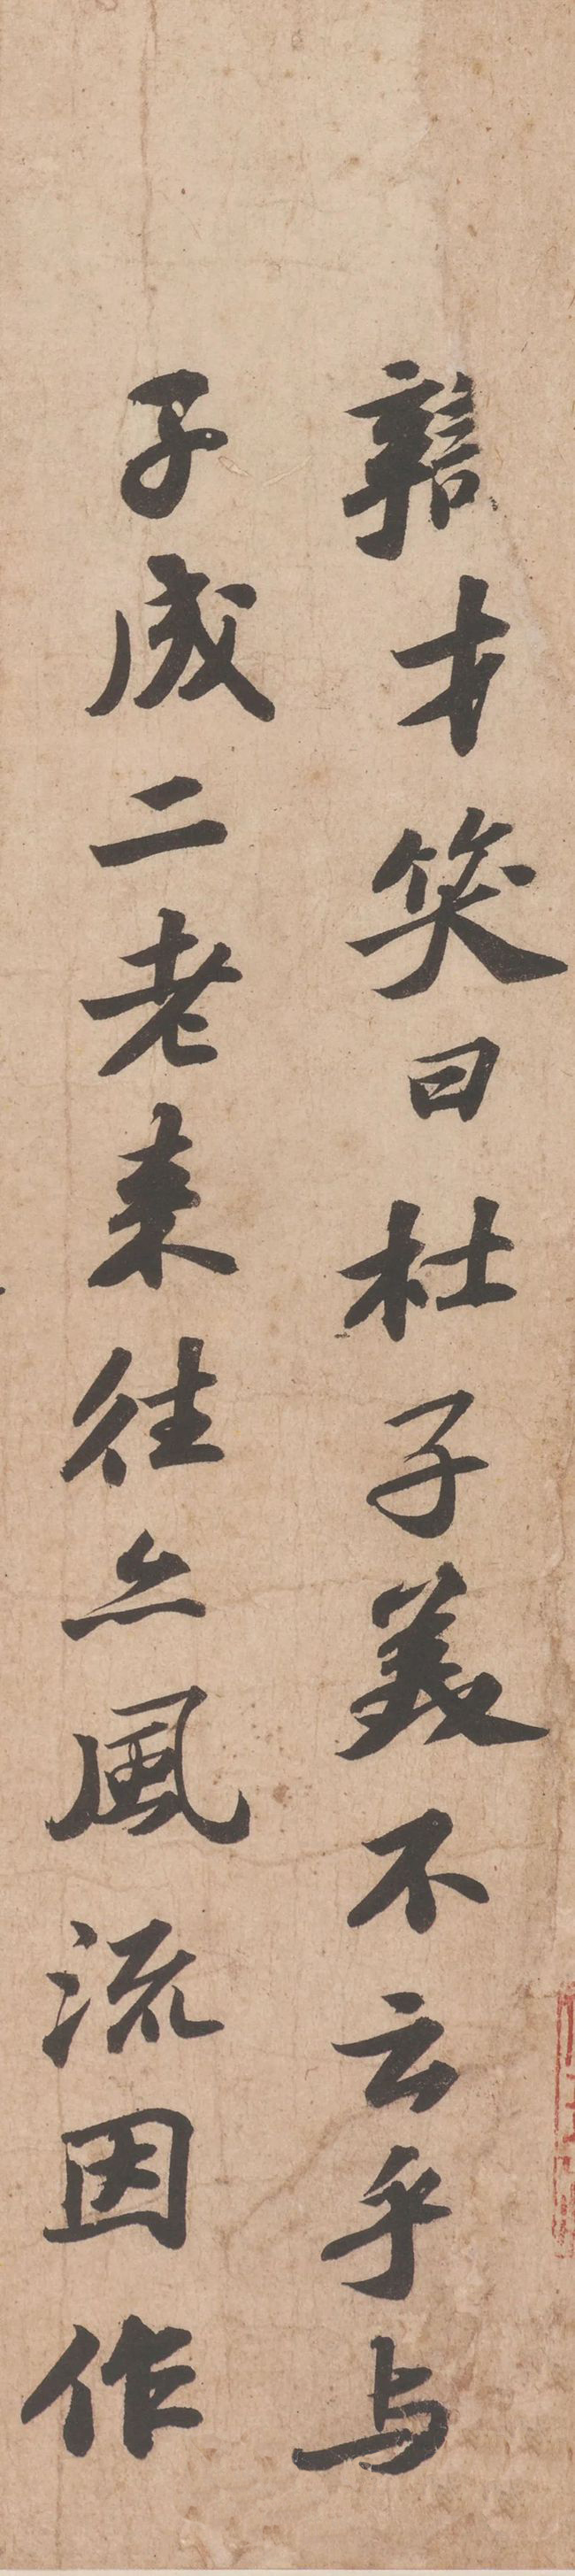 辯才笑曰杜子美不云乎与
子成二老来往亦風流因作